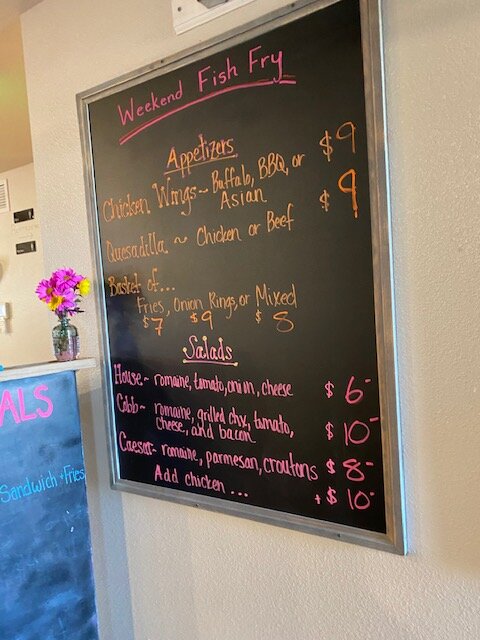 Weekend Fish Fry
Appetizers
Chicken Wings ~ Buffalo, BBQ, or $9
Asian
Quesadilla ~ Chicken or Beef $9
Basket of...
Fries, Onion Rings, or Mixed
$7 $9 $8
Salads
House ~ romaine, tomato, onion, cheese $6-
Cobb ~ romaine, grilled chx, tomato,
cheese, and bacon $10-
Caesar- romaine, parmesan, croutons $8-
Add chicken... +$10-
ALS
Sandwich + Fries